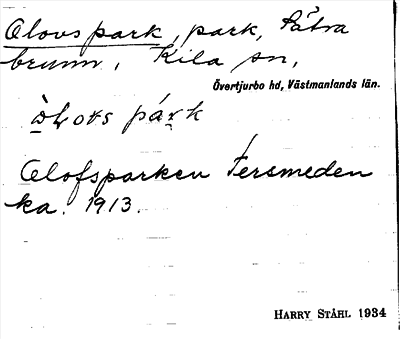 Olovspark, park, Sätra
brunn, Kila sn,
Övertjurbo hd, Västmanlands län.
Olofsparken Fersmeden
ka. 1913.
HARRY STÅHL 1934